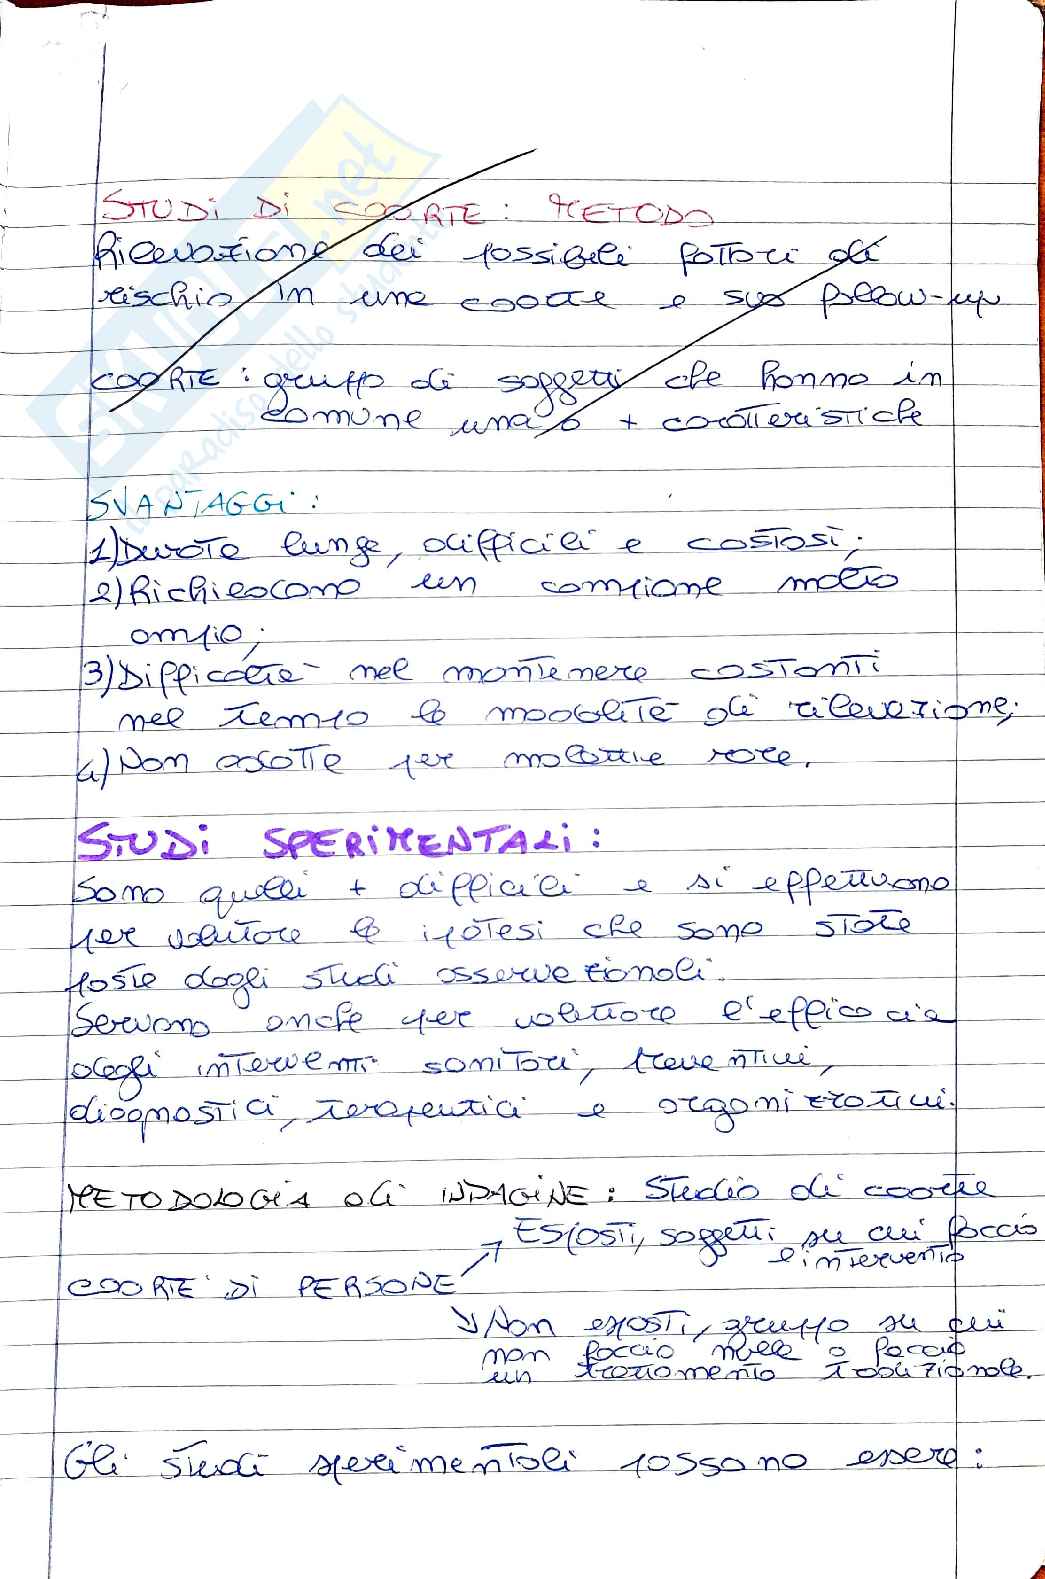 STUDI DI COORTE: METODO
Rilevazione dei possibili fattori di
rischio in una coorte e suo follow-up
COORTE: gruppo di soggetti che hanno in
comune una o + caratteristiche
SVANTAGGI:
1) Durata lunga, difficili e costosi;
2) Richiedono un campione molto
ampio;
3) Difficoltà nel mantenere costanti
nel tempo le modalità di rilevazione;
4) Non adatte per malattie rare.
STUDI SPERIMENTALI:
Sono quelli + difficili e si effettuano
per valutare le ipotesi che sono state
poste dagli studi osservazionali.
Servono anche per valutare l'efficacia
degli interventi sanitari, preventivi,
diagnostici, terapeutici e organizzativi.
METODOLOGIA di INDAGINE: Studio di coorte
Esposti, soggetti su cui faccio
l'intervento
COORTE DI PERSONE
Non esposti, gruppo su cui
non faccio nulla o faccio
un trattamento tradizionale.
Gli studi sperimentali possono essere:
SKUOLA.net
il paradiso dello studente